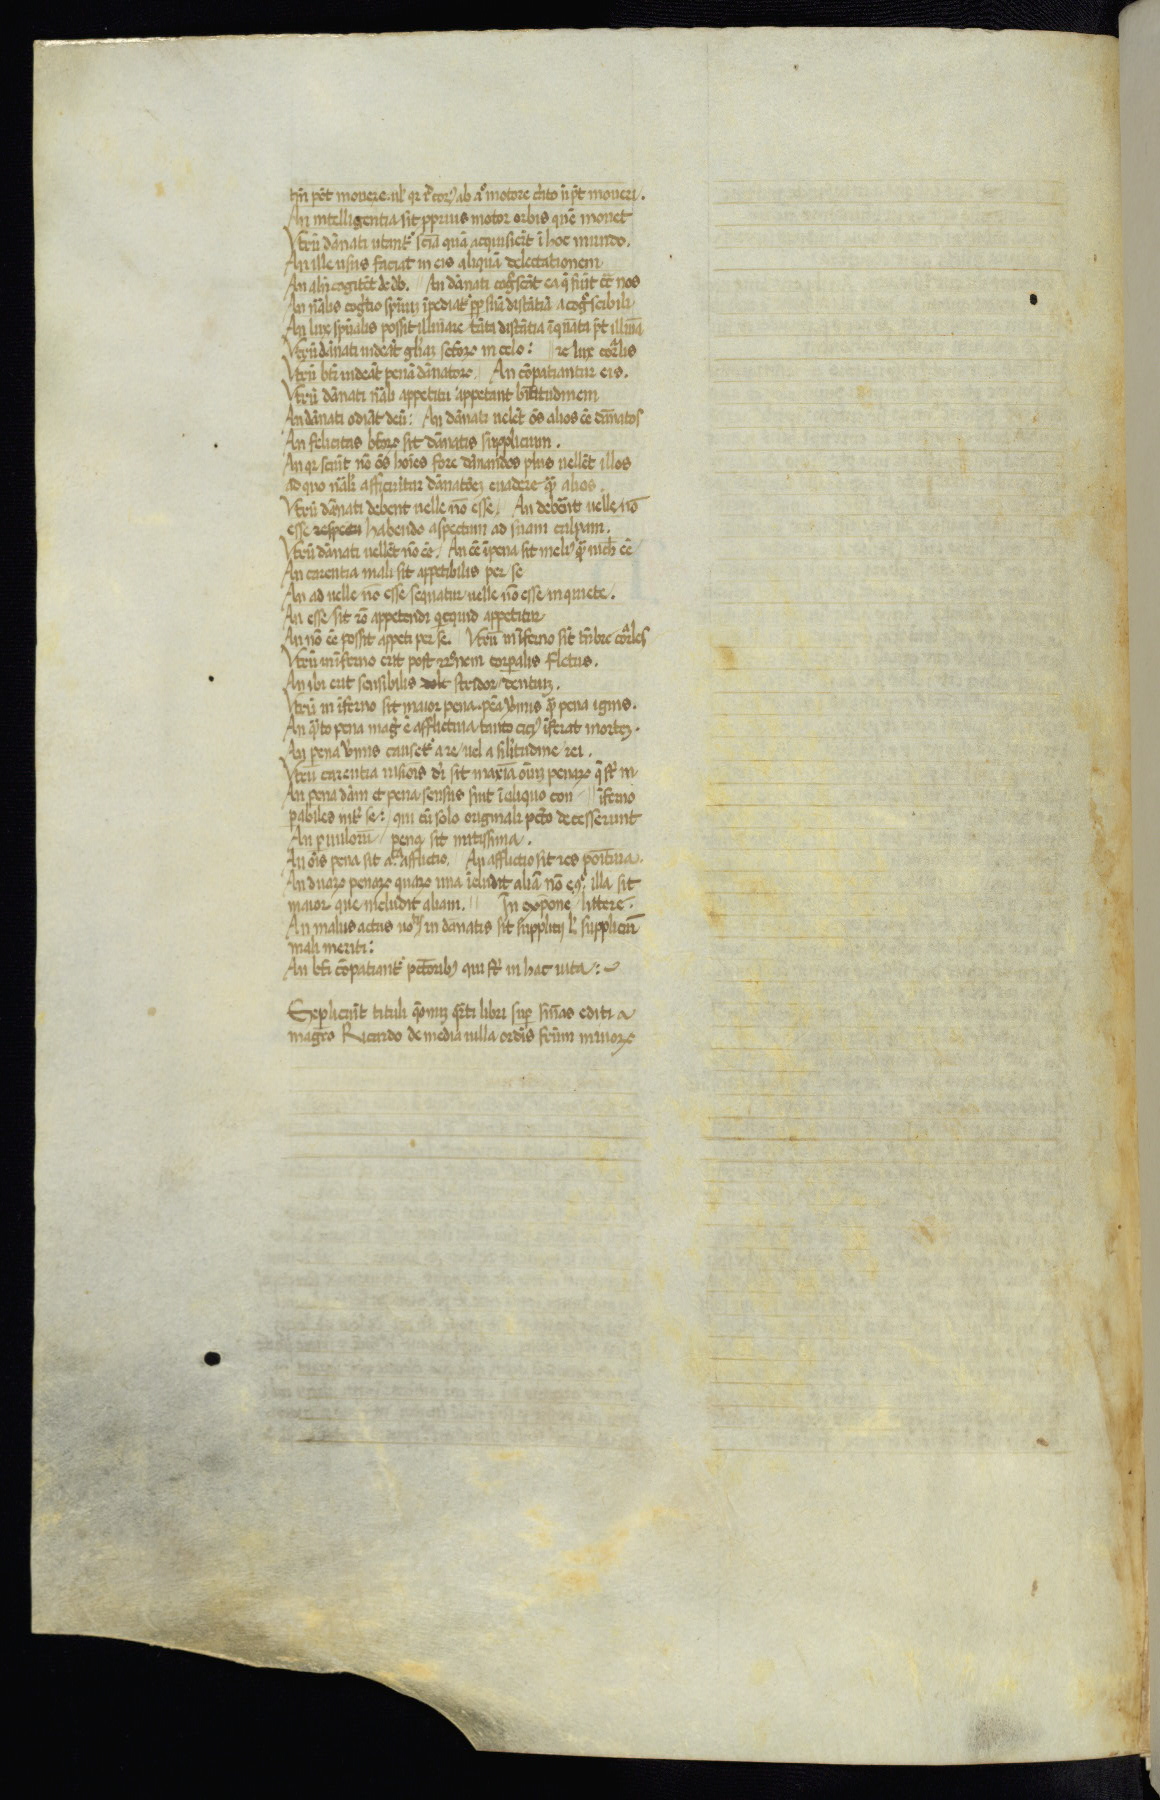 tm̄ pōt movere. ul' qr t̄ corꝰ ab aᵒ motore cīto n̄ pōt moveri.
An intelligentia sit proprius motor orbis quē movet
Vtrū dānati utantᷣ sciā quā acquisierūt ī hoc mundo.
An ille usus faciat in eis aliquā delectationem
An aliq̄ cogitēt de dō. An dānati cog̃scāt ea q̄ fiūt cᷓ nos
An nālis cogīto sp̄uum īpediatᷣ pp suā distātiā a cog̃scibili
An lux sp̄ualis possit illūare tāta distātia īquāta pōt illūa
Vtrū dānati videāt glīaz sctōꝝ in celo: re lux corꝑlis
Vtrū bt̄i videāt penā dānatoꝝ. An cōpatiantur eis.
Vtrū dānati nāli appetitu appetant btītudinem
An dānati odiāt deū: An dānati velēt ōs alios eē dānatos
An felicitas btōꝝ sit dānatis supplicium.
An qr sciūt nō ōs hoīes fore dānandos plus vellēt illos
ad quo nāli afficiūtur dānatōeꝫ evadere qᷓ alios.
Vtrū dānati debent velle nō esse. An debēāt velle nō
esse respectu habendo aspectum ad suam culpam.
Vtrū dānati vellēt nō eē. An eē ī pena sit meliꝰ qᷓ nich' eē
An carentia mali sit appetibilis per se
An ad velle nō esse sequatur velle nō esse in quiete.
An esse sit rō appetendi quicquid appetitur
An nō eē possit appeti per se. Vtrū in īferno sīt tn̄bre corꝑles
Vtrū in īferno erit post r̄ōnem corporalis fletus.
An ibi erit sensibilis stridor dentiuꝫ.
Vtrū in īferno sit maior pena. pēa v̄mis qᷓ pena ignis.
An qᷓto pena magꝭ ē afflictiva tanto citiꝰ īferat mortēꝫ.
An pena v̄mis causetᷣ a re vel a sil'itudine rei.
Vtrū carentia visiōis dī sit maxīa oīuꝫ penaꝝ q̄ st̄ in
An pena dām et pena sensus sint ī aliquo con īferno
pabiles intᷣ se: qui cū solo originali pctō decesserunt
An pvulorū pena sit mitissima.
An oīs pena sit aᵃ afflictio. An afflictio sit res positiva.
An duaꝝ penaꝝ quaꝝ una īcludit aliā nō eꝯ illa sit
maior que includit aliam. In expōne littere.
An malus actus volūtꝭ in dānatis sit suppliciū l' suppliciū
mali meriti:
An bt̄i cōpatiantᷣ pctōribꝰ qui st̄ in hac vita:

Expliciūt tituli qōnuꝫ qrti libri sup̄ sn̄ias editi a
magrō Ricardo de media villa ordīs fr̄um minoꝝ